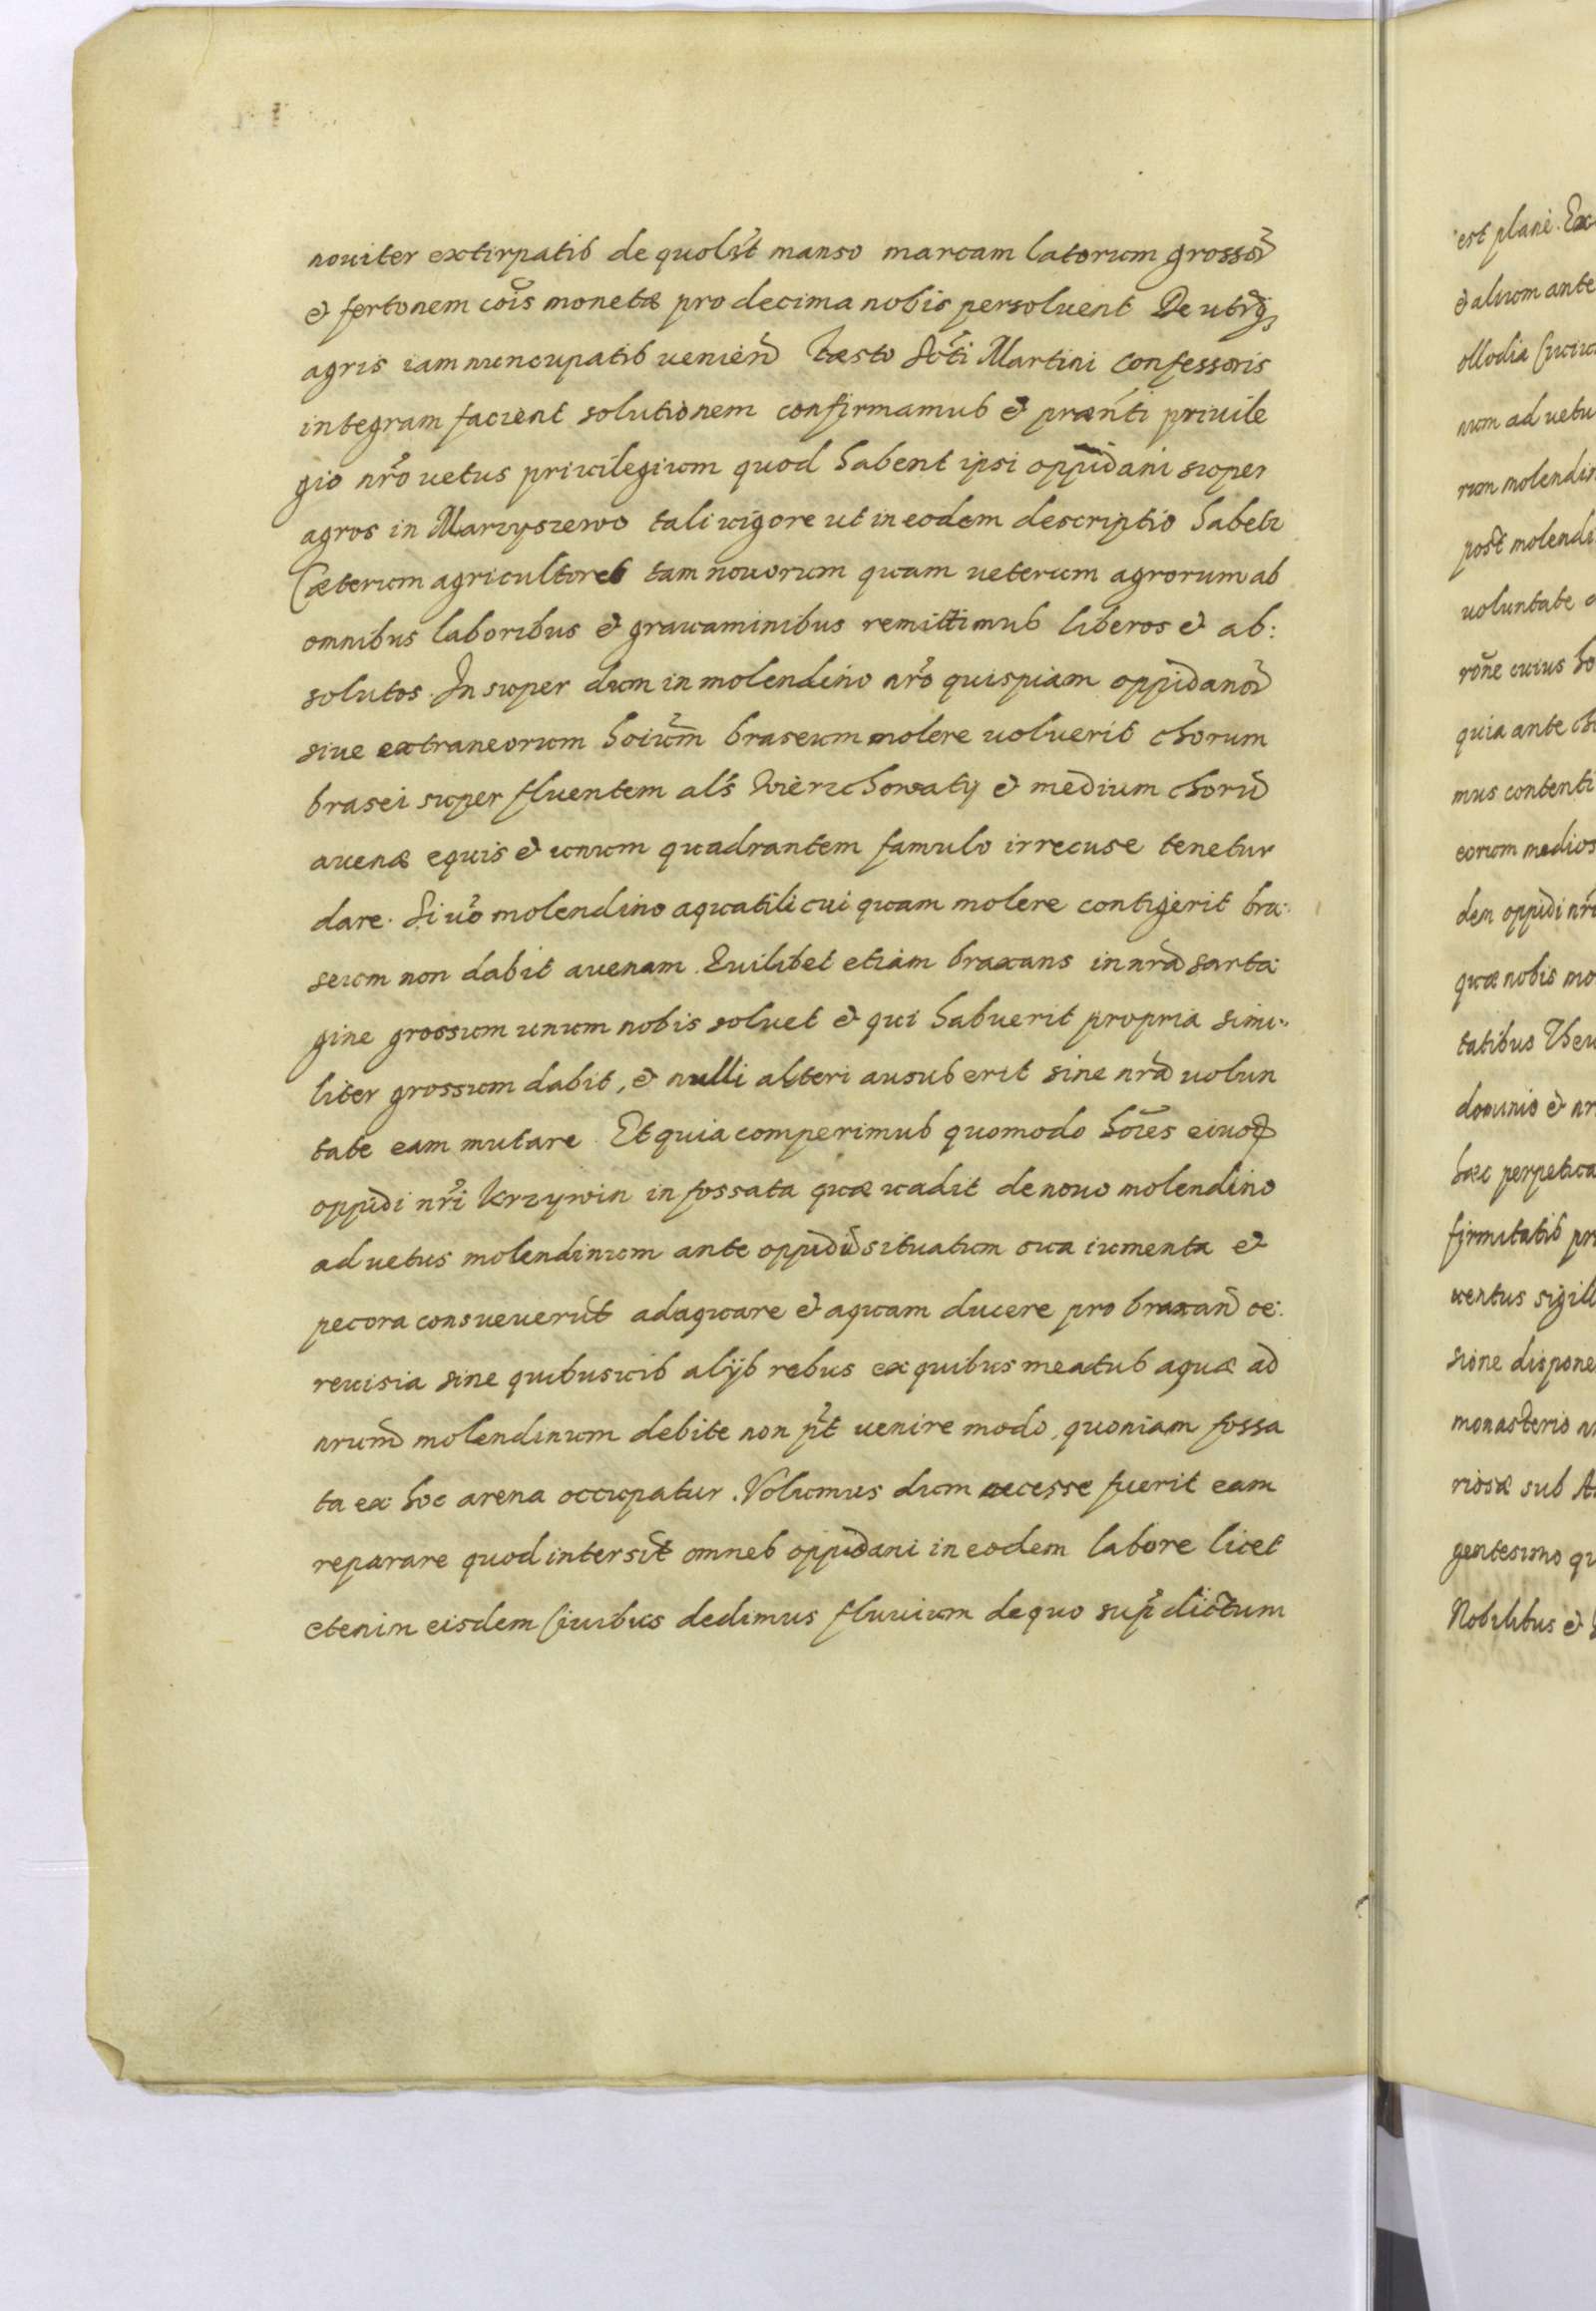 nouiter extirpatis de quolib́t manso marcam latorum grossoꝝ
& fertonem cõis monetæ pro decima nobis persoluent De utrisq́
agris iam nuncupatis uenien̄ fæsto Sc̃ti Martini Confessoris
integram facient solutionem confirmamus & præn̄ti priuile
gio nr̃o uetus priuilegium quod habent ipsi oppidani super
agros in Marzyszewo tali uigore ut in eodem descriptio habetur
Cæterum agricultores tam nouorum quam ueterum agrorum ab
omnibus laboribus & grauaminibus remittimus liberos & ab:
solutos. In super dum in molendino nr̃o quispiam oppidanoꝝ
siue extraneorum hoĩum braseum molere uoluerit chorum
brasei super fluentem al's Wierzchowaty & medium chorū
auenæ equis & unum quadrantem famulo irrecuse tenetur
dare. Si uõ molendino aquatili cui quam molere contigerit bra:
seum non dabit auenam. Quilibet etiam braxans in nrã sarta:
gine grossum unum nobis soluet & qui habuerit propria simi:
liter grossum dabit, & nulli alteri ausus erit sine nrã uolun
tate eam mutare. Et quia comperimus quomodo hões eiusd̃
oppidi nr̃i Krzywin in fossata quæ uadit de nouo molendino
ad uetus molendinum ante oppidū situatum sua iumenta &
pecora consueuerūt adaquare & aquam ducere pro braxan̄ ce:
reuisia sine quibusuis alijs rebus ex quibus meatus aquæ ad
nrum̄ molendinum debite non p̃t uenire modo, quoniam fossa
ta ex hoc arena occupatur. Volumus dum necesse fuerit eam
reparare quod intersīt omnes oppidani in eodem labore licet
etenim eisdem Ciuibus dedimus fluuium de quo sup̃ dictum
est plane. Ex
& alium ante
ollodia
num ad uetu
rum molendin
post molendi
uoluntate
rõne cuius ho
quia ante
mus contenti
eorum medios
dem oppidi nr̃i
quæ nobis mo
tatibus
dominio & nr
hæc perpetua
firmitatis pr
uentus sigill
sione dispone
monasterio n
riosæ sub A
gentesimo qu
Nobilibus &